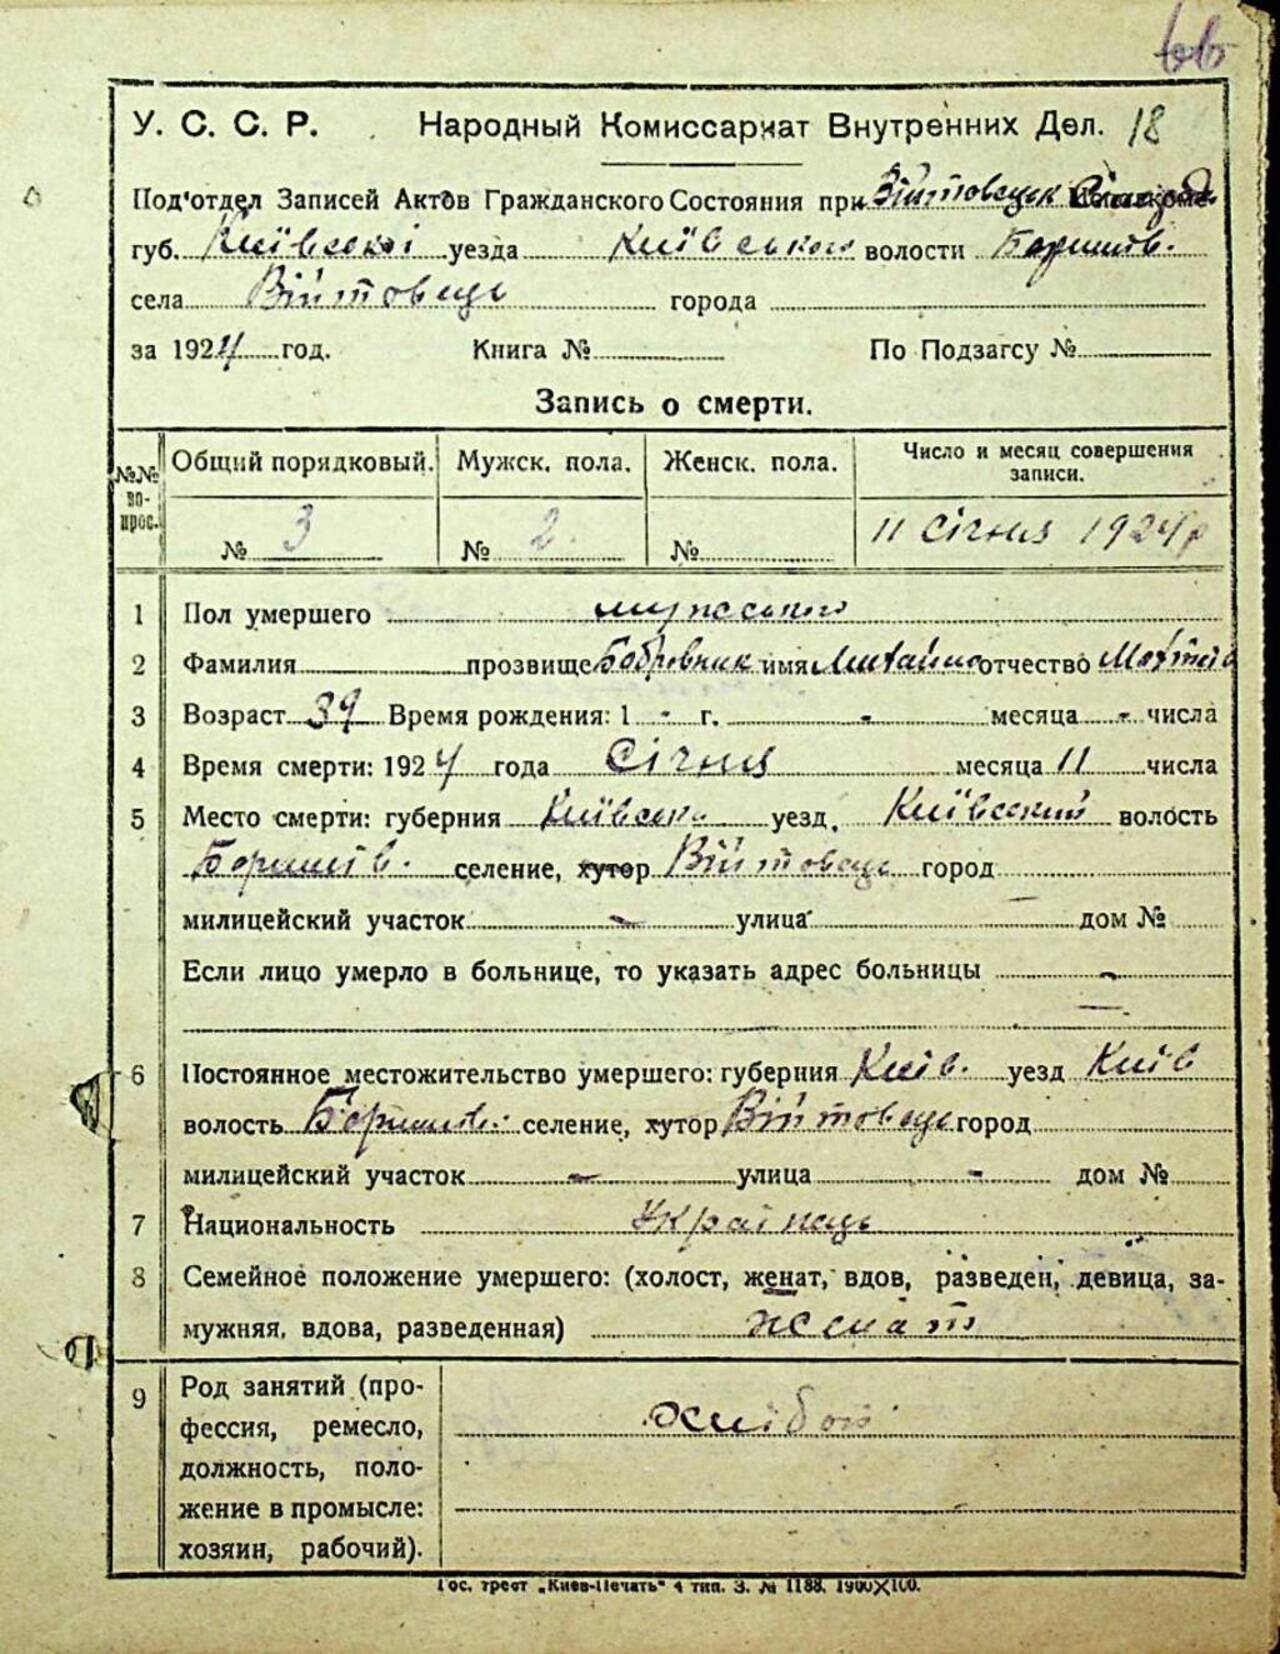 66
У. С. С. Р. Народный Комиссариат Внутренних Дел. 18
Под'отдел Записей Актов Гражданского Состояния при Війтовецк
губ. Київської уезда Київського волости Боришп.
села Війтовець города
за 1924 год. Книга № По Подзагсу №
Запись о смерти.
№№ вопрос. Общий порядковый. Мужск. пола. Женск. пола. Число и месяц совершения записи.
№ 3 № 2. № 11 Січня 1924 р
1 Пол умершего мужського
2 Фамилия прозвище Бобровник имя Михайло отчество
3 Возраст 39 Время рождения: 1 - г. - месяца - числа
4 Время смерти: 1924 года Січня месяца 11 числа
5 Место смерти: губерния Київська уезд, Київський волость
Боришп. селение, хутор Війтовець город
милицейский участок - улица дом №
Если лицо умерло в больнице, то указать адрес больницы -
6 Постоянное местожительство умершего: губерния Київ. уезд Київ
волость Боришп. селение, хутор Війтовець город
милицейский участок - улица - дом №
7 Национальность Українець
8 Семейное положение умершего: (холост, женат, вдов, разведен, девица, за-
мужняя, вдова, разведенная) женат
9 Род занятий (про-
фессия, ремесло,
должность, поло-
жение в промысле:
хозяин, рабочий).
хлібор
Гос. трест „Киев-Печать" 4 тип. З. № 1188. 1900×100.